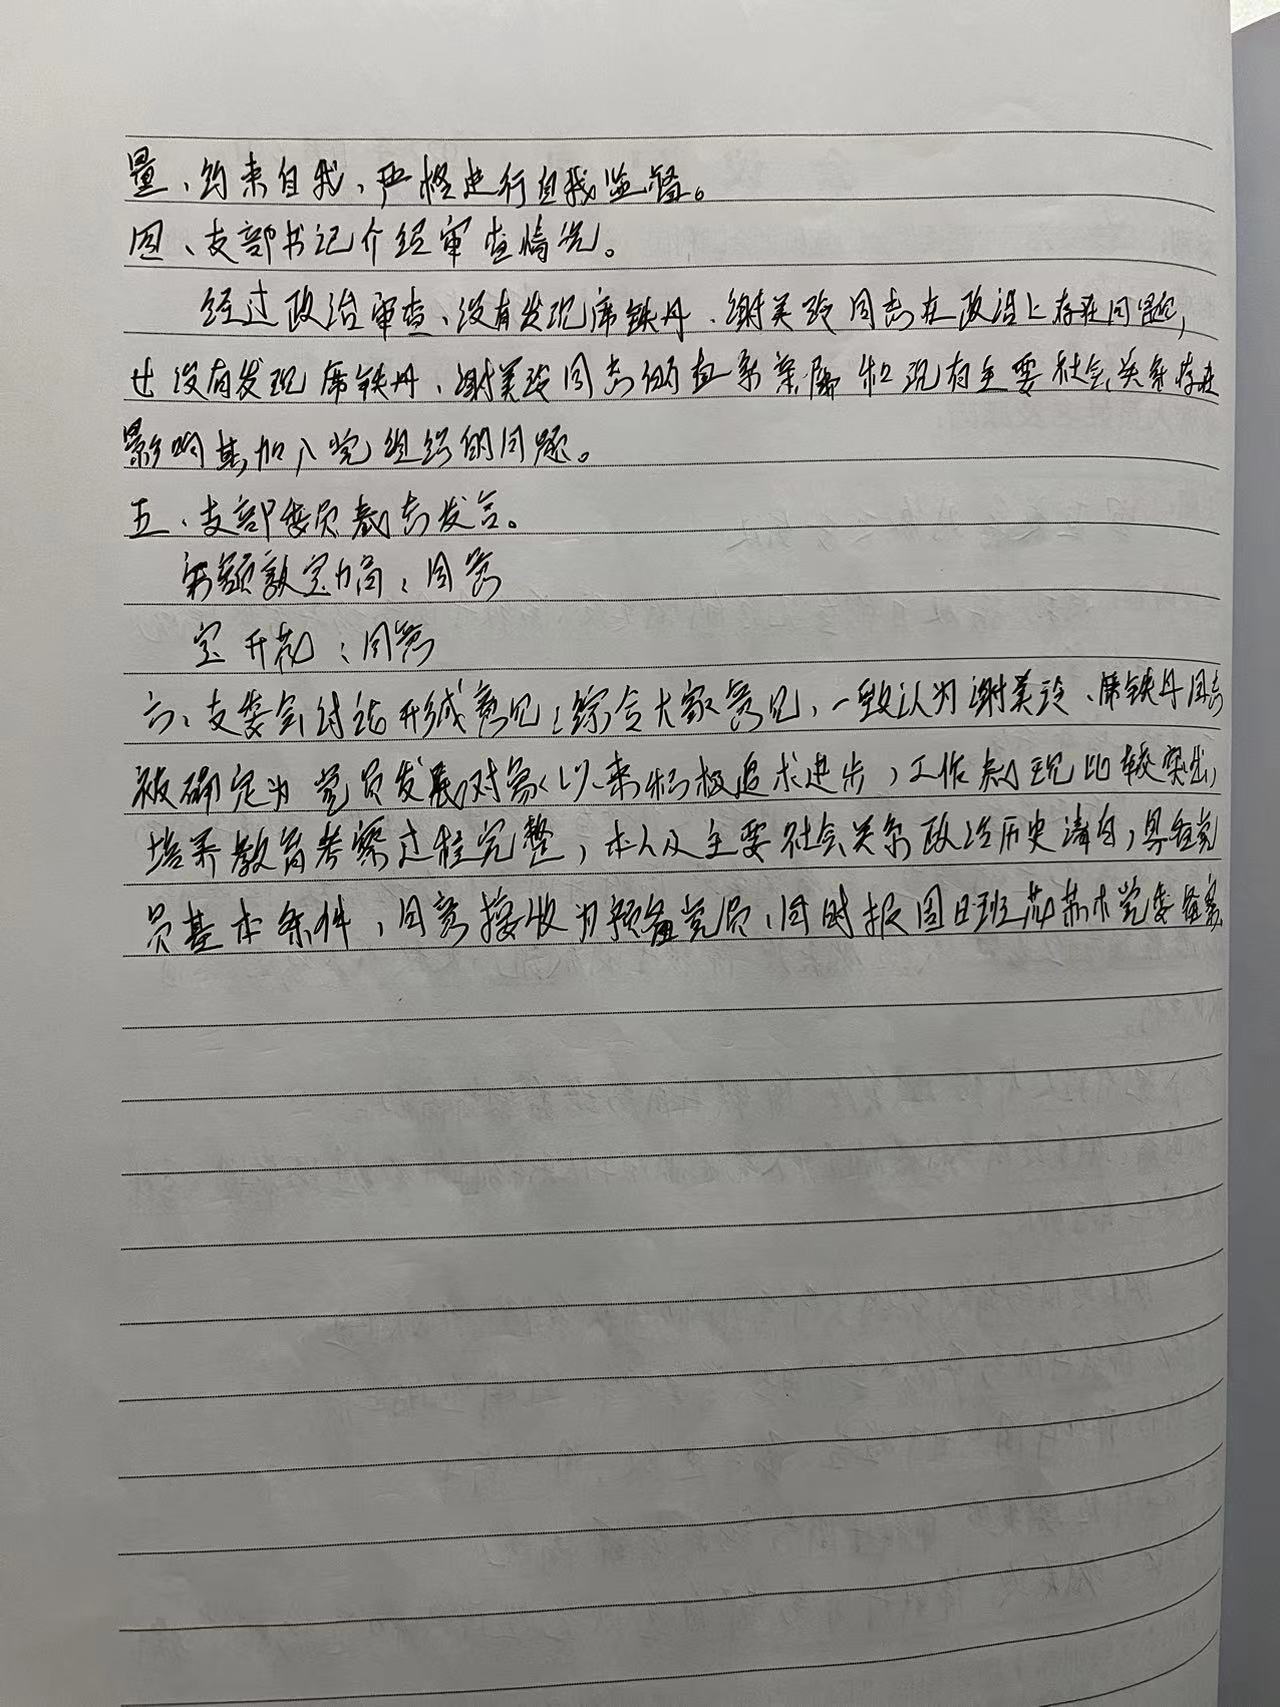 量、约束自我、严格进行自我监督。
四、支部书记介绍审查情况。
经过政治审查、没有发现席铁丹、谢美玲同志在政治上存在问题,
也没有发现席铁丹、谢美玲同志的直系亲属和现有主要社会关系存在
影响其加入党组织的问题。
五、支部委员表态发言。
额敦宝力高：同意
宝开花：同意
六、支委会讨论形成意见：综合大家意见，一致认为谢美玲、席铁丹同志
被确定为党员发展对象以来积极追求进步，工作表现比较突出，
培养教育考察过程完整，本人及主要社会关系政治历史清白，具备党
员基本条件，同意接收为预备党员、同时报固日班花苏木党委备案